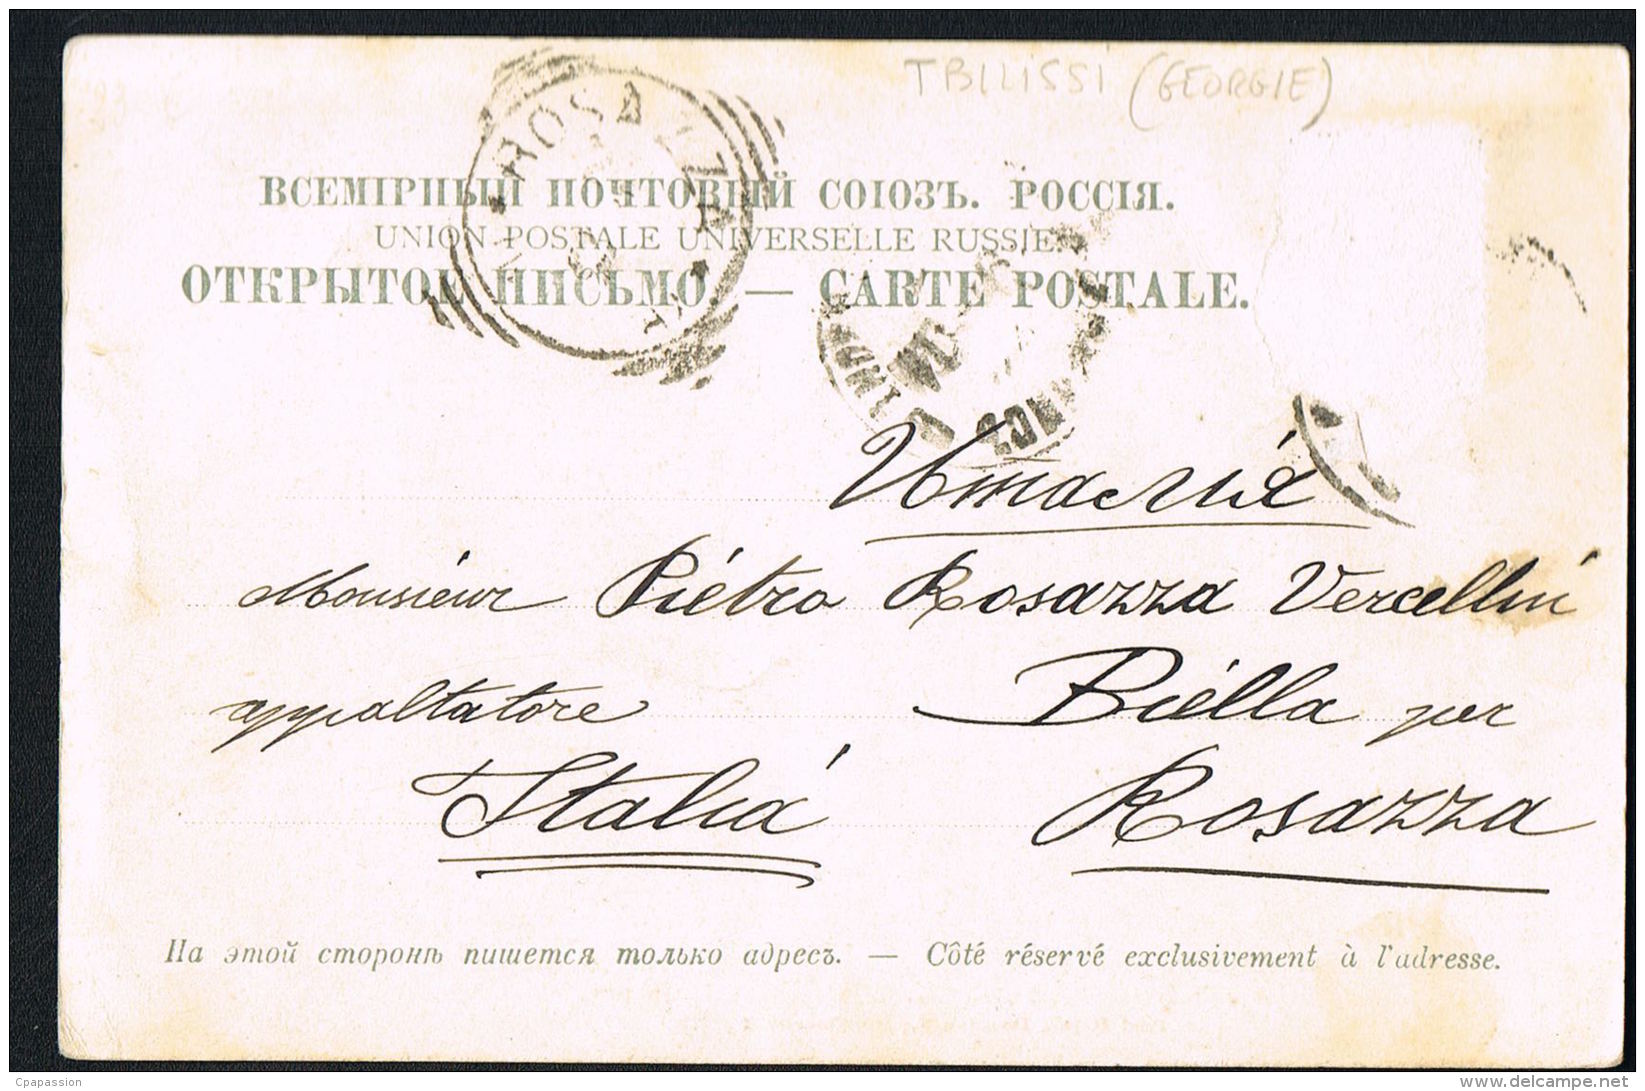 TBILISSI (GEORGIE)
ROSAZZA
ВСЕМІРНЫЙ ПОЧТОВЫЙ СОЮЗЪ. РОССІЯ.
UNION POSTALE UNIVERSELLE RUSSIE.
ОТКРЫТОЕ ПИСЬМО. — CARTE POSTALE.
Италія
Monsieur Piétro Rosazza Vercellini
appaltatore Biella per
Italia Rosazza
На этой сторонѣ пишется только адресъ. — Côté réservé exclusivement à l'adresse.
Cpapassion
www.delcampe.net